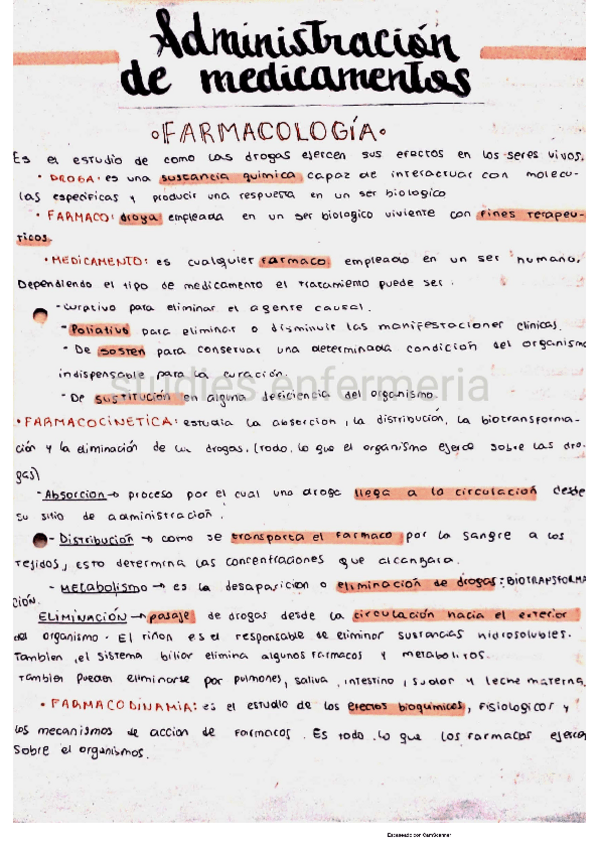 Administración
de medicamentos
∘FARMACOLOGÍA∘
Es el estudio de como las drogas ejercen sus efectos en los seres vivos.
• DROGA: es una sustancia química capaz de interactuar con molecu-
las especificas y producir una respuesta en un ser biologico
• FARMACO: droga empleada en un ser biologico viviente con fines terapeu-
ticos.
• MEDICAMENTO: es cualquier farmaco empleado en un ser humano.
Dependiendo el tipo de medicamento el tratamiento puede ser:
- curativo para eliminar el agente causal.
- Poliativo para eliminar o disminuir las manifestaciones clinicas.
- De sosten para conservar una determinada condicion del organismo
indispensable para la curación.
studies.enfermeria
- De sustitución en alguna deficiencia del organismo.
• FARMACOCINETICA: estudia la absorcion, la distribución, la biotransforma-
ción y la eliminación de las drogas. (todo lo que el organismo ejerce sobre las dro-
gas)
- Absorcion → proceso por el cual una droga llega a la circulación desde
su sitio de administración.
- Distribución → como se transporta el farmaco por la sangre a los
tejidos, esto determina las concentraciones que alcanzara.
- Metabolismo → es la desaparicion o eliminación de drogas: BIOTRANSFORMA
CIÓN.
ELIMINACIÓN → pasaje de drogas desde la circulación hacia el exterior
del organismo. El riñon es el responsable de eliminar sustancias hidrosolubles.
Tambien, el sistema biliar elimina algunos farmacos y metabolitos.
Tambien pueden eliminarse por pulmones, saliva, intestino, sudor y leche materna.
• FARMACODINAMIA: es el estudio de los efectos bioquimicos, fisiologicos y
los mecanismos de accion de farmacos. Es todo lo que los farmacos ejercen
sobre el organismos.
Escaneado con CamScanner